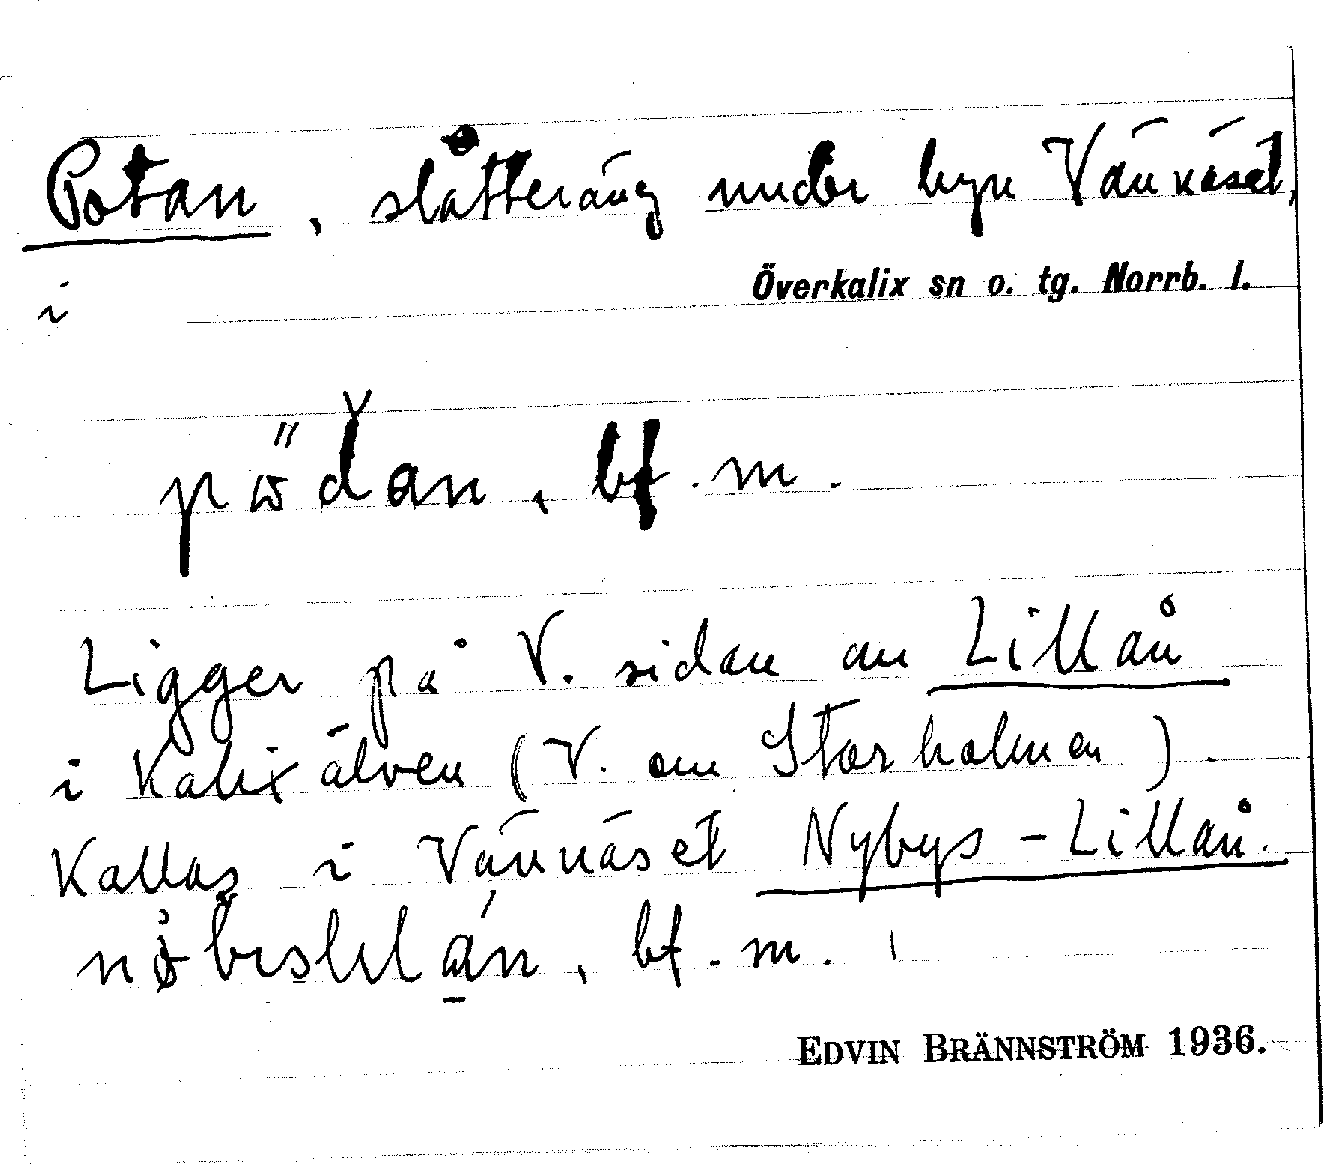 Potan, slåtteräng under byn Vännäset,
i Överkalix sn o. tg. Norrb. l.
bf. m.
Ligger på V. sidan av Lillån
i Kalixälven (V. om Storholmen).
Kallas i Vännäset Nybys-Lillån.
bf. m.
EDVIN BRÄNNSTRÖM 1936.